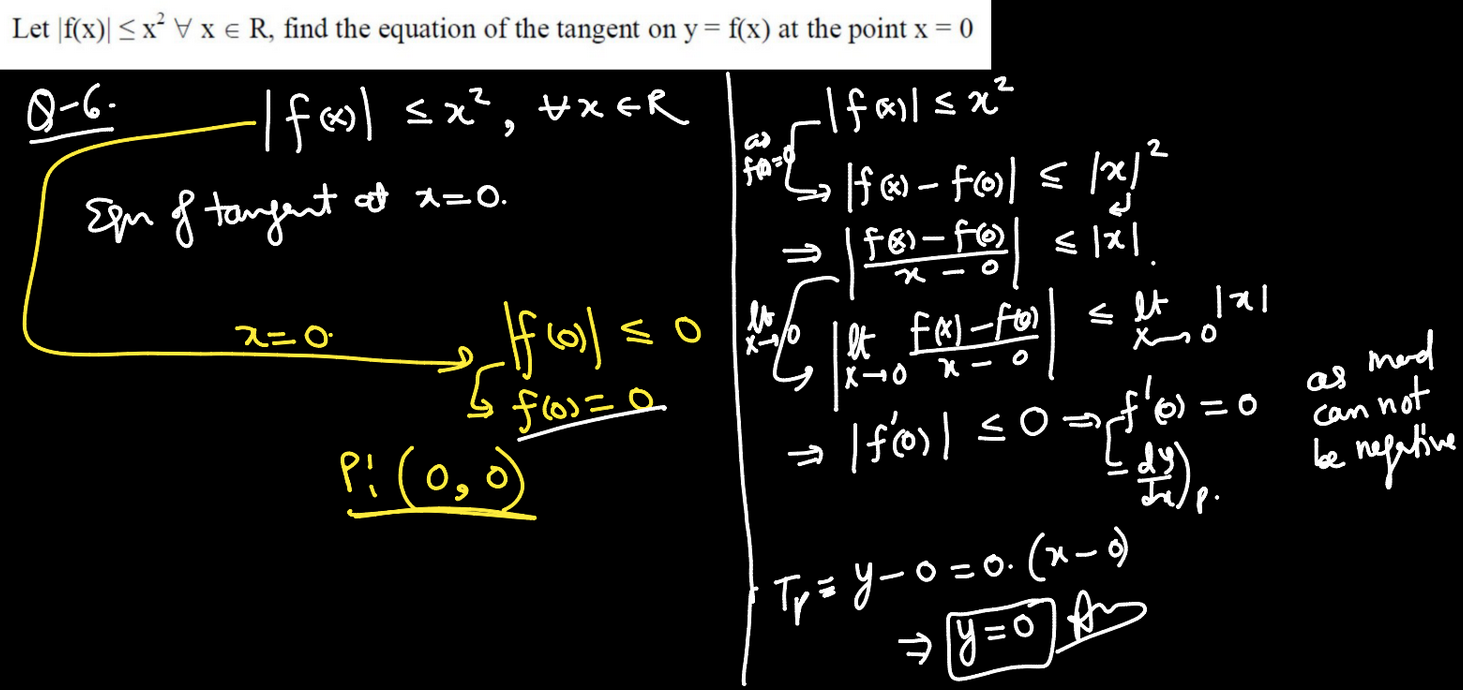 Let |f(x)| ≤ x² ∀ x ∈ R, find the equation of the tangent on y = f(x) at the point x = 0
Q-6.
|f(x)| ≤ x², ∀x ∈ R
Eqn of tangent at x=0.
x=0.
|f(0)| ≤ 0
f(0)=0
P: (0,0)
|f(x)| ≤ x²
as f(0)=0
→ |f(x) - f(0)| ≤ |x|²
⇒ |(f(x) - f(0))/(x - 0)| ≤ |x|.
lt x→0
|lt x→0 (f(x) - f(0))/(x - 0)| ≤ lt x→0 |x|
⇒ |f'(0)| ≤ 0 ⇒ f'(0) = 0
as mod can not be negative
= dy/dx)p.
Tp ≡ y-0 = 0.(x-0)
⇒ y=0 Ans